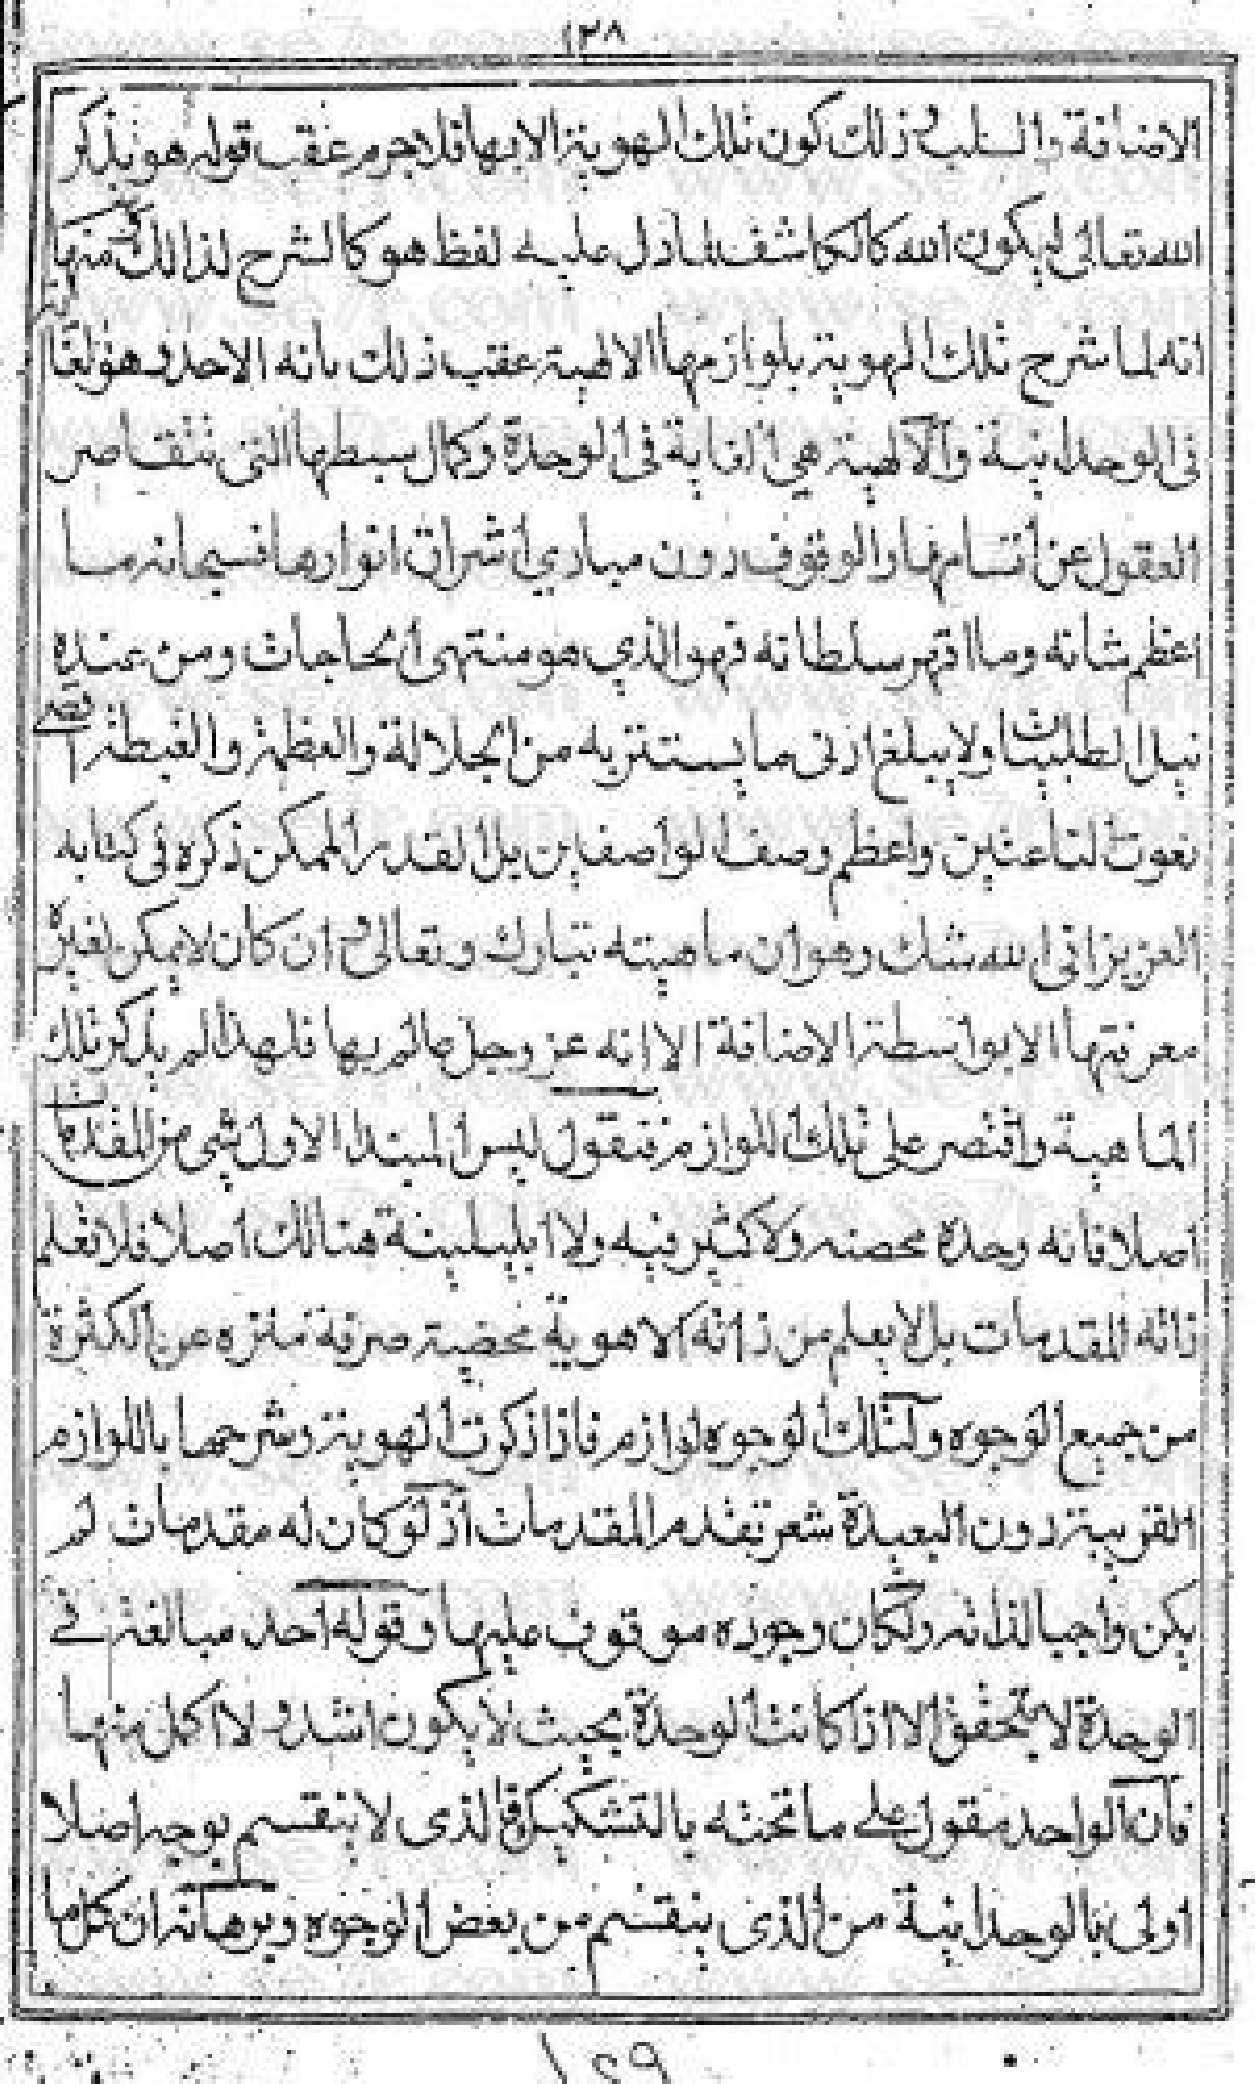 ١٣٨
الاضافة والسلب وذلك كون تلك الهوية الا بها فلاجرم عقب قوله هو بذكر
الله تعالى ليكون الله كالكاشف لما دل عليه لفظ هو كالشرح لذالك ومنها
انه لما شرح تلك الهوية بلوازمها الالهية عقب ذلك بانه الاحد وهو لغا
فى الوحدانية والآلهية هي الغاية فى الوحدة وكمال سبطها التى تتقاصر
العقول عن أقسامها والوقوف دون مبادي اشراق انوارها فسبحانه ما
اعظم شانه وما اقهر سلطانه فهو الذي هو منتهى الحاجات ومن عنده
نيل الطلبات ولا يبلغ ادنى ما يستنزبه من الجلالة والعظمة والغبطة اقصى
نعوت الناعتين واعظم وصف الواصفين بل القدر الممكن ذكره فى كتابه
العزيز افى الله شك وهو ان ماهيته تبارك وتعالى وان كان لا يمكن لغيره
معرفتها الا بواسطة الاضافة الا انه عز وجل عالم بها فلهذا لم يذكر تلك
الماهية واقتصر على تلك اللوازم فنقول ليس المبتدا الاول شى من المقدمات
اصلا فانه وحدة محضه ولا كثير فيه ولا اثنينية هنالك اصلا فلا تعلم
ذاته المقدمات بل لا يعلم من ذاته الا هوية محضية صرفة منزه عن الكثرة
من جميع الوجوه ولتلك الوجوه لوازم فاذا ذكرت الهوية وشرحها باللوازم
القريبة دون البعيدة شعر بفقدم المقدمات اذ لو كان له مقدمات لم
يكن واجبا لذاته ولكان وجوده موقوف عليها وقوله احد مبالغة فے
الوحدة لا يتحقق الا اذا كانت الوحدة بحيث لا يكون اشد ولا اكمل منها
فان الواحد مقول على ما تحته بالتشكيك والذى لا ينقسم بوجه اصلا
اولى بالوحدانية من الذى ينقسم من بعض الوجوه وبرهانه ان كل ما
١٣٩